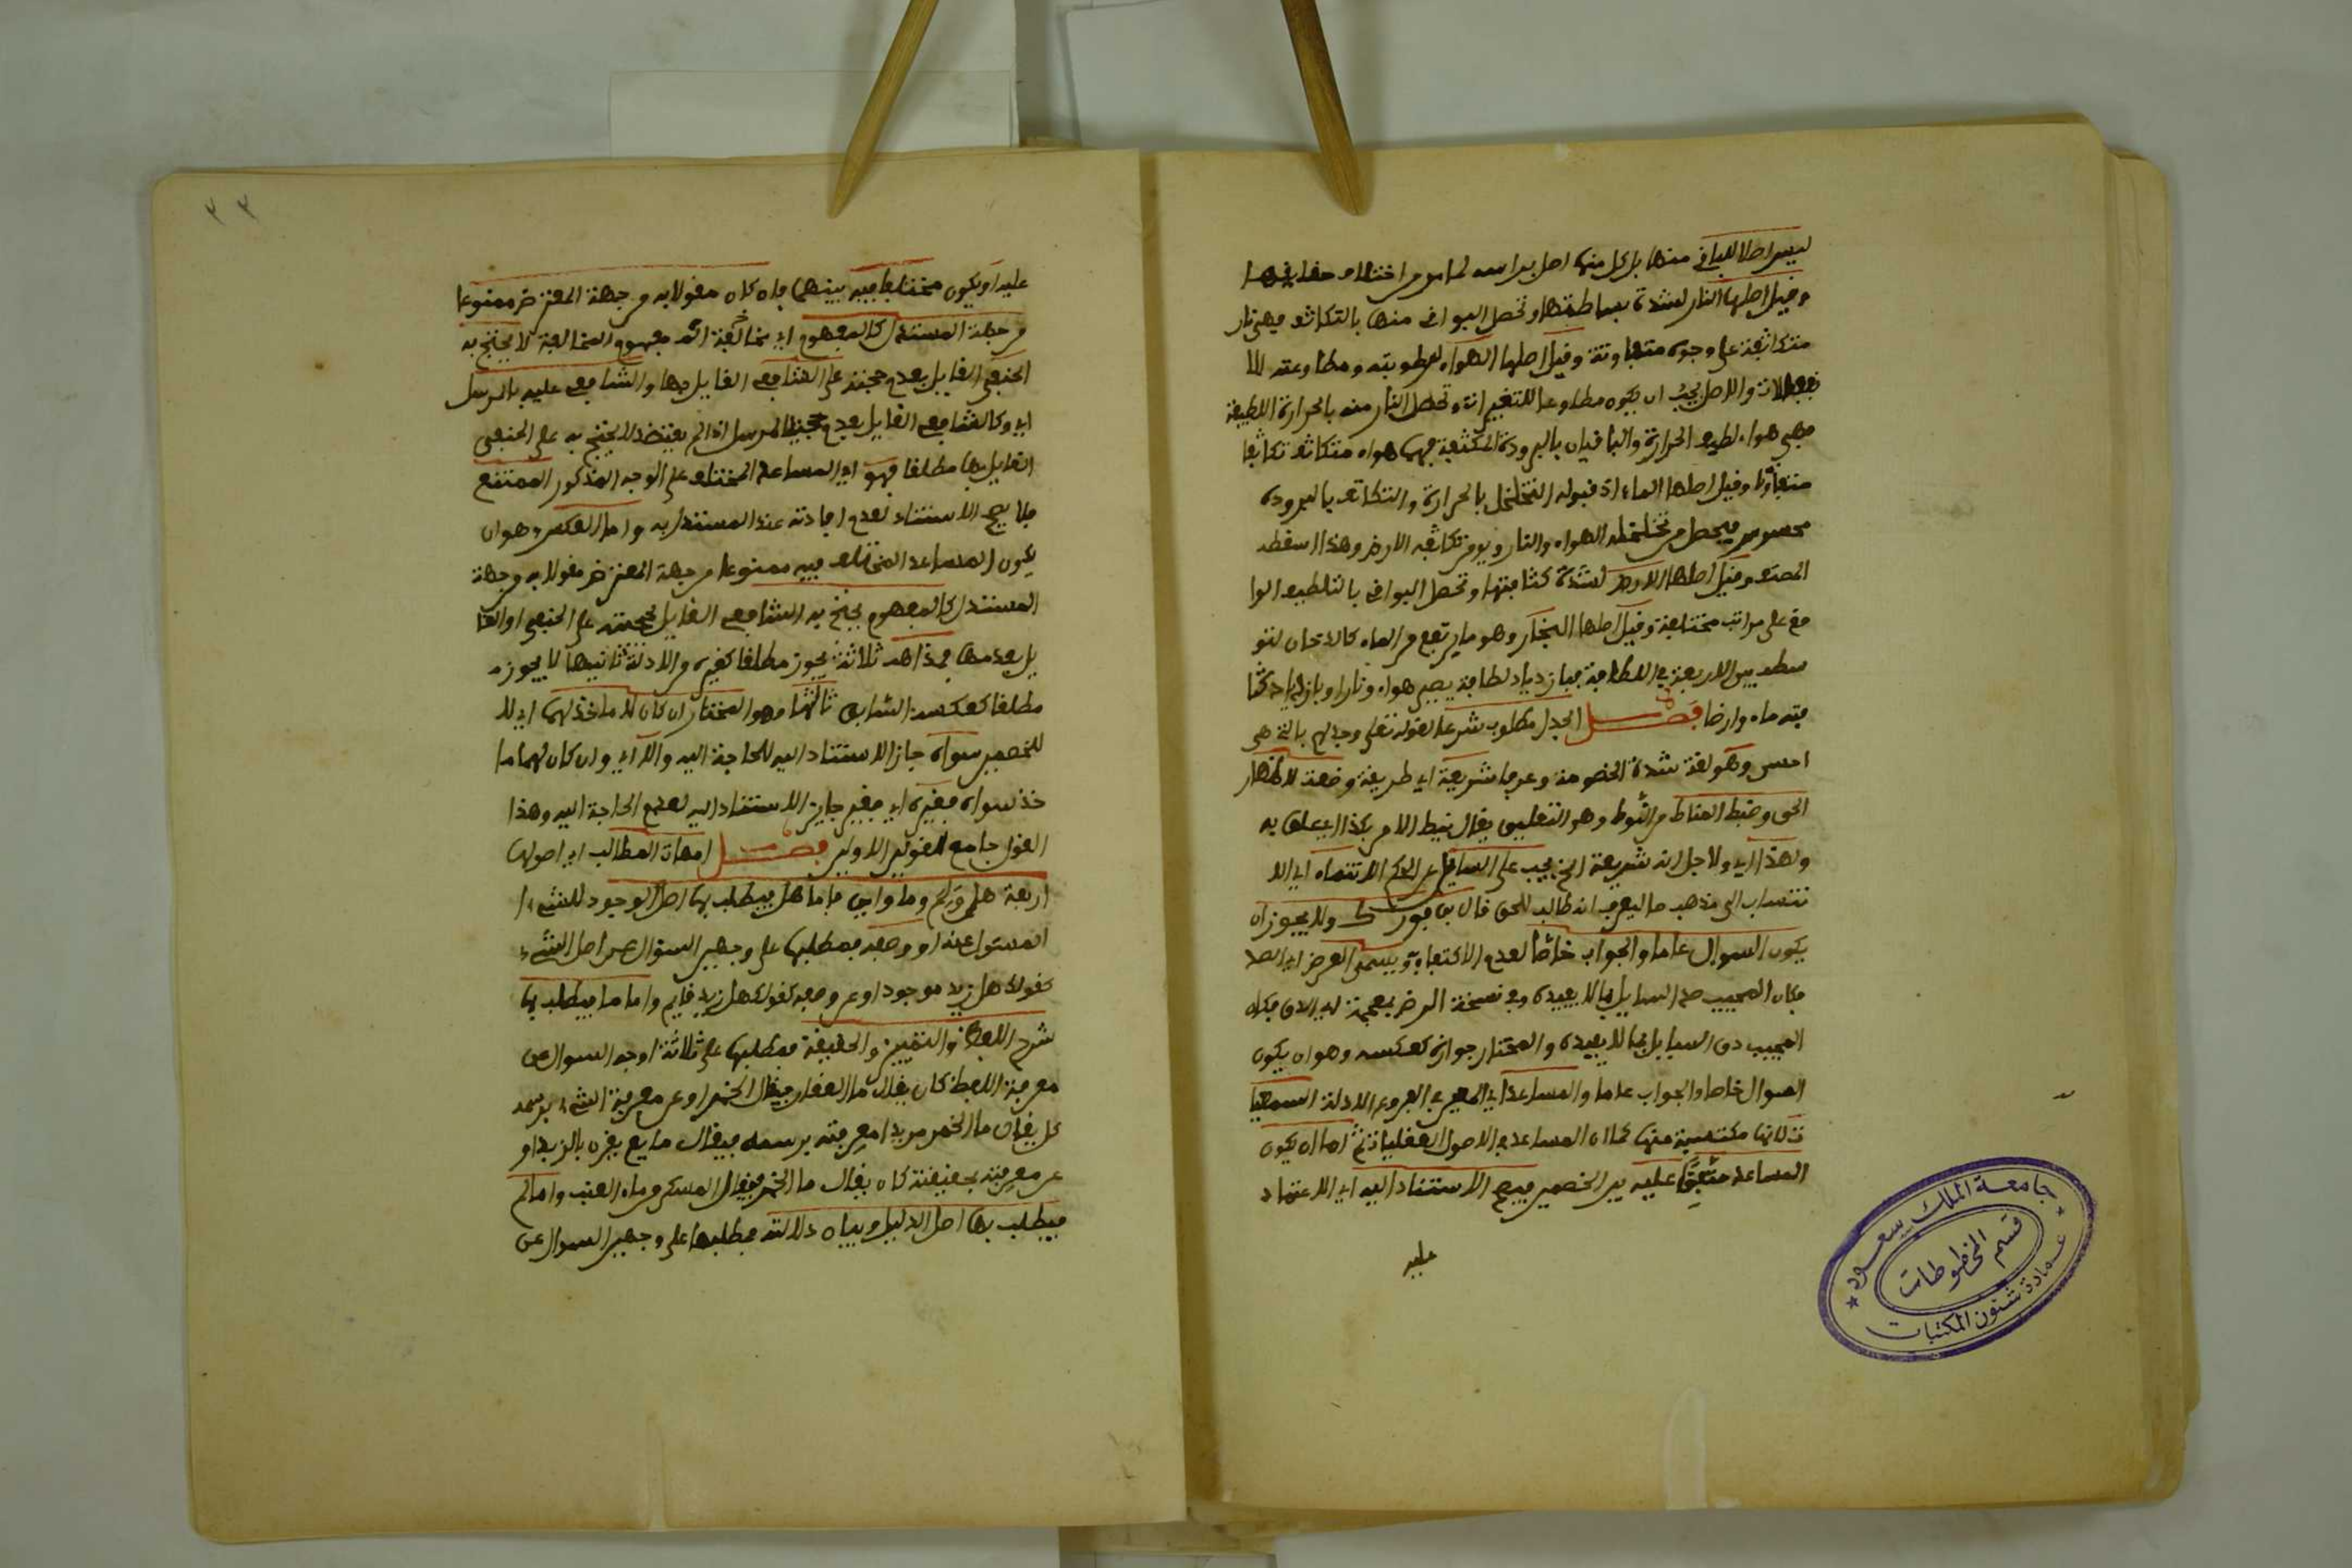 ليس اصلا للباقي منها بل كل منها اصل براسه لما مر من اختلاف حقايقها
وقيل اصلها النار لشدة بساطتها وتحصل البواقي منها بالتكاثف فهي نار
متكاثفة على وجوه متفاوتة وقيل اصلها الهواء لرطوبته ومطاوعته للا
نفعالات والاصل يجب ان يكون مطاوعا للتغيرات وتحصل النار منه بالحرارة اللطيفة
فهي هواء لطيف الحرارة والباقيان بالبرودة المكثفة فهما هواء متكاثف تكاثفا
متفاوتا وقيل اصلها الماء اذ قبوله التخلخل بالحرارة والتكاثف بالبرودة
محسوس فيحصل من تخلخله الهواء والنار ومن تكاثفه الارض وهذا اسقطه
المصنف وقيل اصلها الارض لشدة كثافتها وتحصل البواقي بالتلطيف الوا
قع على مراتب مختلفة وقيل اصلها البخار وهو ما يرتفع من الماء كالدخان لتو
سطه بين الاربعة في اللطافة فبازدياد لطافة يصير هواء ونارا وبازدياد كثا
فته ماء وارضا فصل الجدل مطلوب شرعا لقوله تعلى وجادلهم بالتي هي
احسن وهو لغة شدة الخصومة وعرفا شريعة اي طريقة وضعت لاظهار
الحق وضبط المناط من النوط وهو التعليق يقال نيط الامر بكذا اي علق به
ولهذا اي ولاجل انه شريعة الخ يجب على السايل عن الحكم الانتماء اي الا
نتساب الى مذهب ما ليعرف انه طالب للحق قال بن فورك ولا يجوز ان
يكون السوال عاما والجواب خاصا لعدم الاكتفاء به ويسمى العرض اي الصد
فكان المجيب صد السايل بما لا يفيده وفي نسخة الرض بمعجمة اي الدق فكان
المجيب دق السايل بما لا يفيده والمختار جوازه كعكسه وهو ان يكون
السوال خاصا والجواب عاما والمساعد اي المعين في الفروع الادلة السمعيا
ت لانها مكتسبة منها كما ان المساعد في الاصول العقليات ثم اما ان يكون
المساعد متفقا عليه بين الخصمين فيصح الاستناد اليه اي الاعتماد
عليه
٣٣
عليه او يكون مختلفا فيه بينهما فان كان مقولا به من جهة المعترض ممنوعا
من جهة المستدل كالمفهوم اي مخالفة اذ مفهوم المخالفة لا يحتج به
الحنفي القايل بعدم حجته على الشافعي القايل بها والشافعي عليه بالمرسل
اي وكالشافعي القايل بعدم حجية المرسل اذا لم يعتضد لا يحتج به على الحنفي
القايل بها مطلقا فهو اي المساعد المختلف على الوجه المذكور الممتنع
فلا يصح الاستناد لعدم افادته عند المستدل به واما العكس وهو ان
يكون المساعد المختلف فيه ممنوعا من جهة المعترض مقولا به من جهة
المستدل كالمفهوم يحتج به الشافعي القايل بحجيته على الحنفي او القا
يل بعدمها فمذاهب ثلاثة يجوز مطلقا كغيره من الادلة ثانيها لا يجوز
مطلقا كعكسه السابق ثالثها وهو المختار ان كان لا ماخذ لهما اي لا
للخصمين سواه جاز الاستناد اليه للحاجة اليه والا اي وان كان لهما ما
خذ سواه فغيره اي فغير جايز الاستناد اليه لعدم الحاجة اليه وهذا
القول جامع للقولين الاولين فصل امهات المطالب اي اصولها
اربعة هل ولم وما واي فاما هل فيطلب بها اصل الوجود للشيء
المسئول عنه او وصفه فمطلبها على وجهين السوال عن اصل الشيء
كقولك هل زيد موجود او عن وصفه كقولك هل زيد قايم واما ما فيطلب بها
شرح اللفظ والتمييز والحقيقة فمطلبها على ثلاثة اوجه السوال عن
معرفة اللفظ كان يقال ما العقار فيقال الخمر او عن معرفة الشيء برسمه
كان يقال ما الخمر مريدا معرفته برسمه فيقال مايع يقذف بالزبد او
عن معرفته بحقيقته كان يقال ما الخمر فيقال المسكر من ماء العنب واما لم
فيطلب بها اصل الدليل وبيان دلالته فمطلبها على وجهين السوال عن
جامعة الملك سعود
قسم المخطوطات
عمادة شئون المكتبات